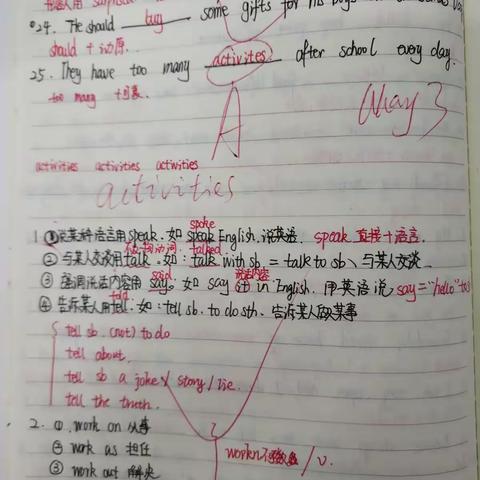 24. He should buy some gifts for his
should + 动原.
25. They have too many activites after school every day.
too many +可复.
A
May 3
activities activities activities
activities
spoke
1. ①说某种语言用speak. 如 speak English. 说英语. speak 直接+语言.
talked
② 与某人交谈用talk. 如: talk with sb. = talk to sb、与某人交谈
said 说话内容
③ 强调说话内容用 say. 如 say it in English. 用英语说 say="hello" to
told
④ 告诉某人用tell. 如: tell sb. to do sth. 告诉某人做某事
tell sb. (not) to do
tell about.
tell sb a joke / story / lie.
tell the truth.
2. ①. work on 从事
② work as 担任
③ work out 解决
work n.不可数 / v.